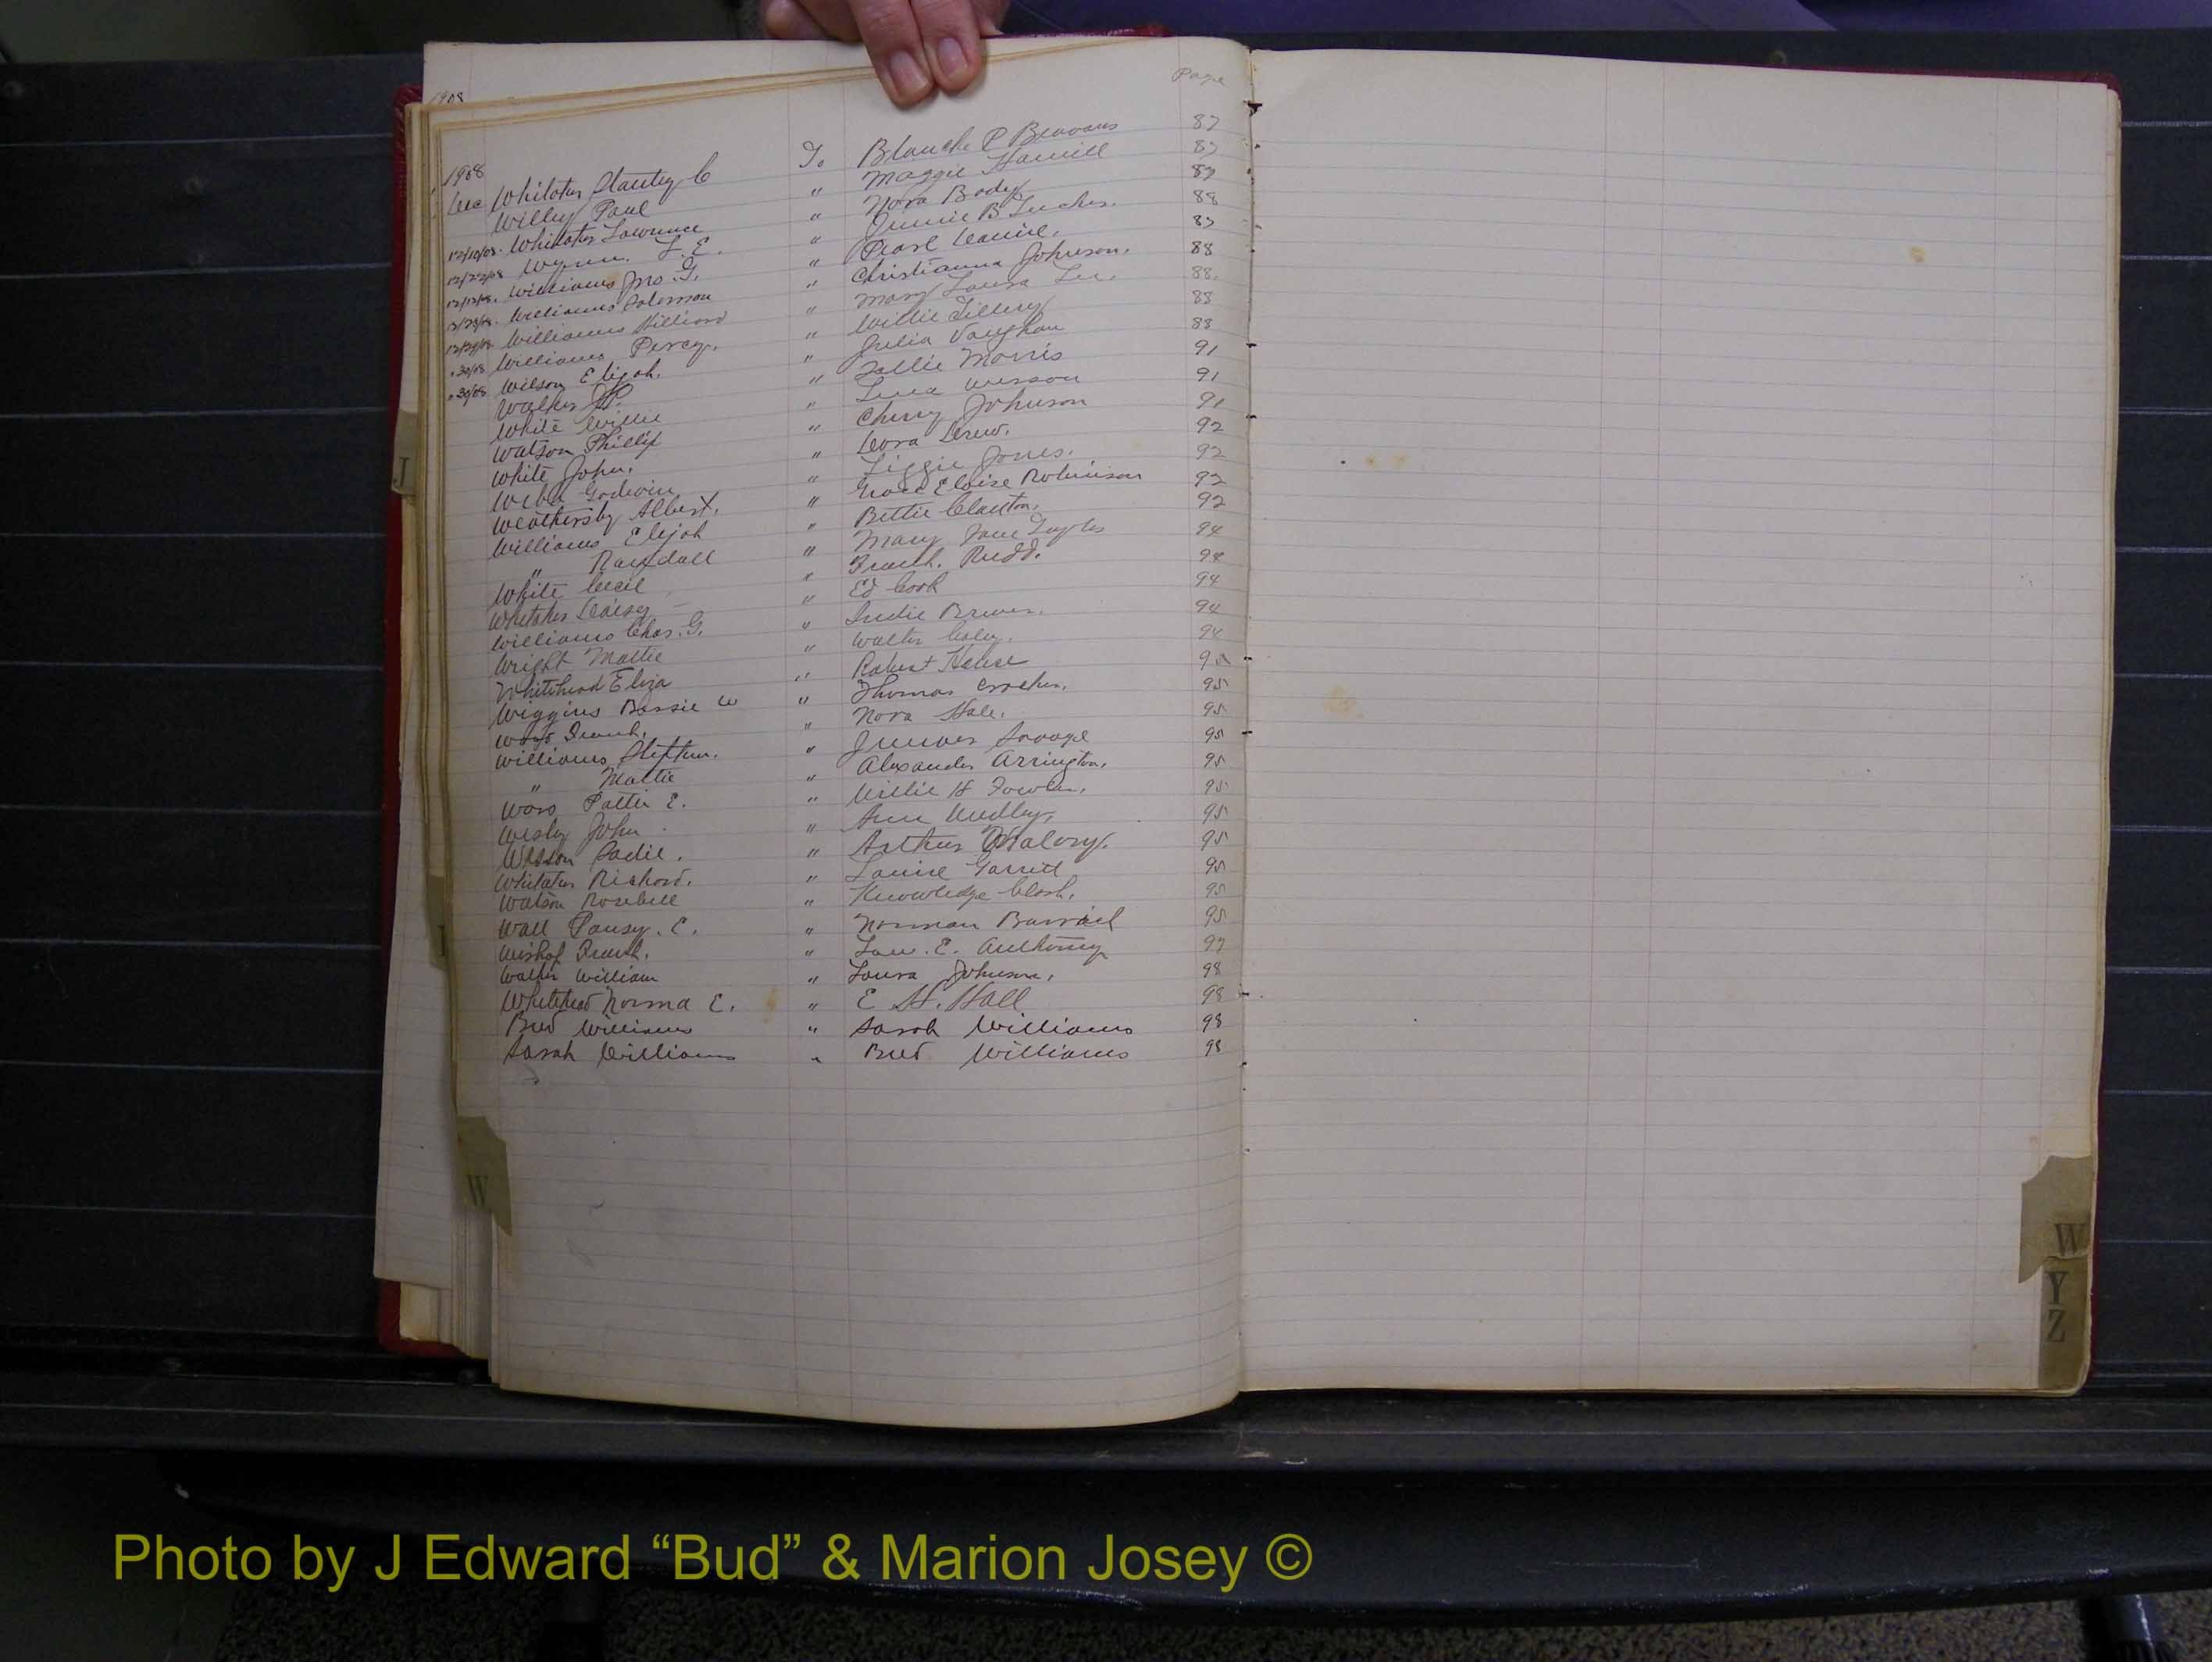 Page
1908
1908
Dec Whitaker Stanley C To Blanche P Beavans 87
Willey Paul " Maggie Hamill 87
12/10/08. Whitaker Lawrence " Nora Body 87
12/22/08 Wynn. L. E. " Jennie B Tucker. 88
12/12/08. Williams Jno. G. " Pearl Daniel. 87
12/28/08. Williams Solomon " Christianna Johnson. 88
12/29/08 Williams Hilliard " Mary Laura Lee. 88.
" 30/08 Williams Percy. " Willie Tillery 88
" 30/08 Wilson Elijah. " Julia Vaughan 88
Walker " Sallie Morris 91
White Willie " Lena 91
Watson Phillip " Cherry Johnson 91
White John. " Dora Drew. 92
Webb Godwin " Lizzie Jones. 92
Weathersby Albert. " Grace Eloise Robinson 92
Williams Elijah " Bettie Clanton. 92
" Randall " Mary Jane 94
White Cecil " Frank. Rudd. 94
Whitaker Daisy " Ed Cook 94
Williams Chas. G. " Sudie Brewer. 94
Wright Mattie " Walter Coley. 94
Whitehead Eliza " Robert House 95
Wiggins Bessie W " Thomas Crocker. 95
Frank. " Nora Hale. 95
Williams Stephen. " Savage 95
" Mattie " Alexander Arrington. 95
Ward Pattie E. " Willie H Fowler. 95
Wesley John " Ann Medley. 95
Wilson Sadie. " Arthur Malory. 95
Whitaker Richard. " Louise Garrett 95
Watson Rosebell " Knowledge Clark. 95
Wall Pansy. E. " Norman 95
Frank. " Lou. E. Anthony 97
Walker William " Laura Johnson. 98
Whitehead Norma E. " E H. Hall 98
Bud Williams " Sarah Williams 98
Sarah Williams " Bud Williams 98
J
I
W
W
Y
Z
Photo by J Edward “Bud” & Marion Josey ©